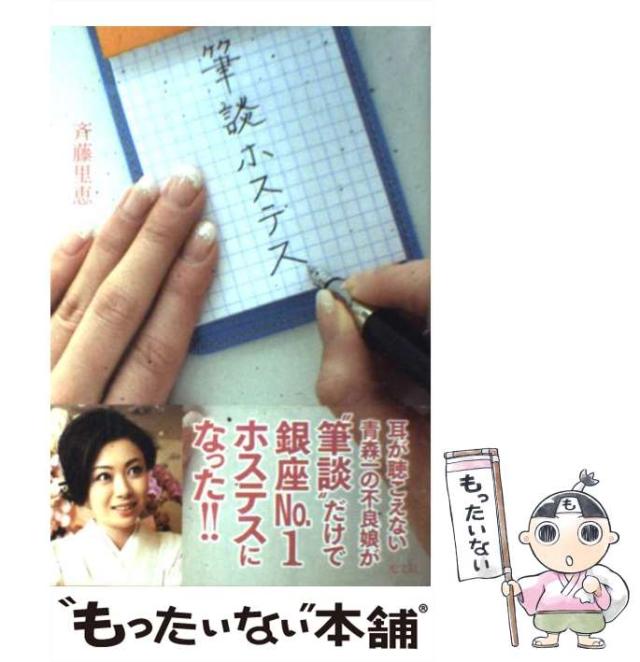 筆談ホステス
斉藤里恵
耳が聴こえない
青森一の不良娘が
“筆談”だけで
銀座No.1
ホステスに
なった!!
光文社
もったいない
も
“もったいない”本舗®